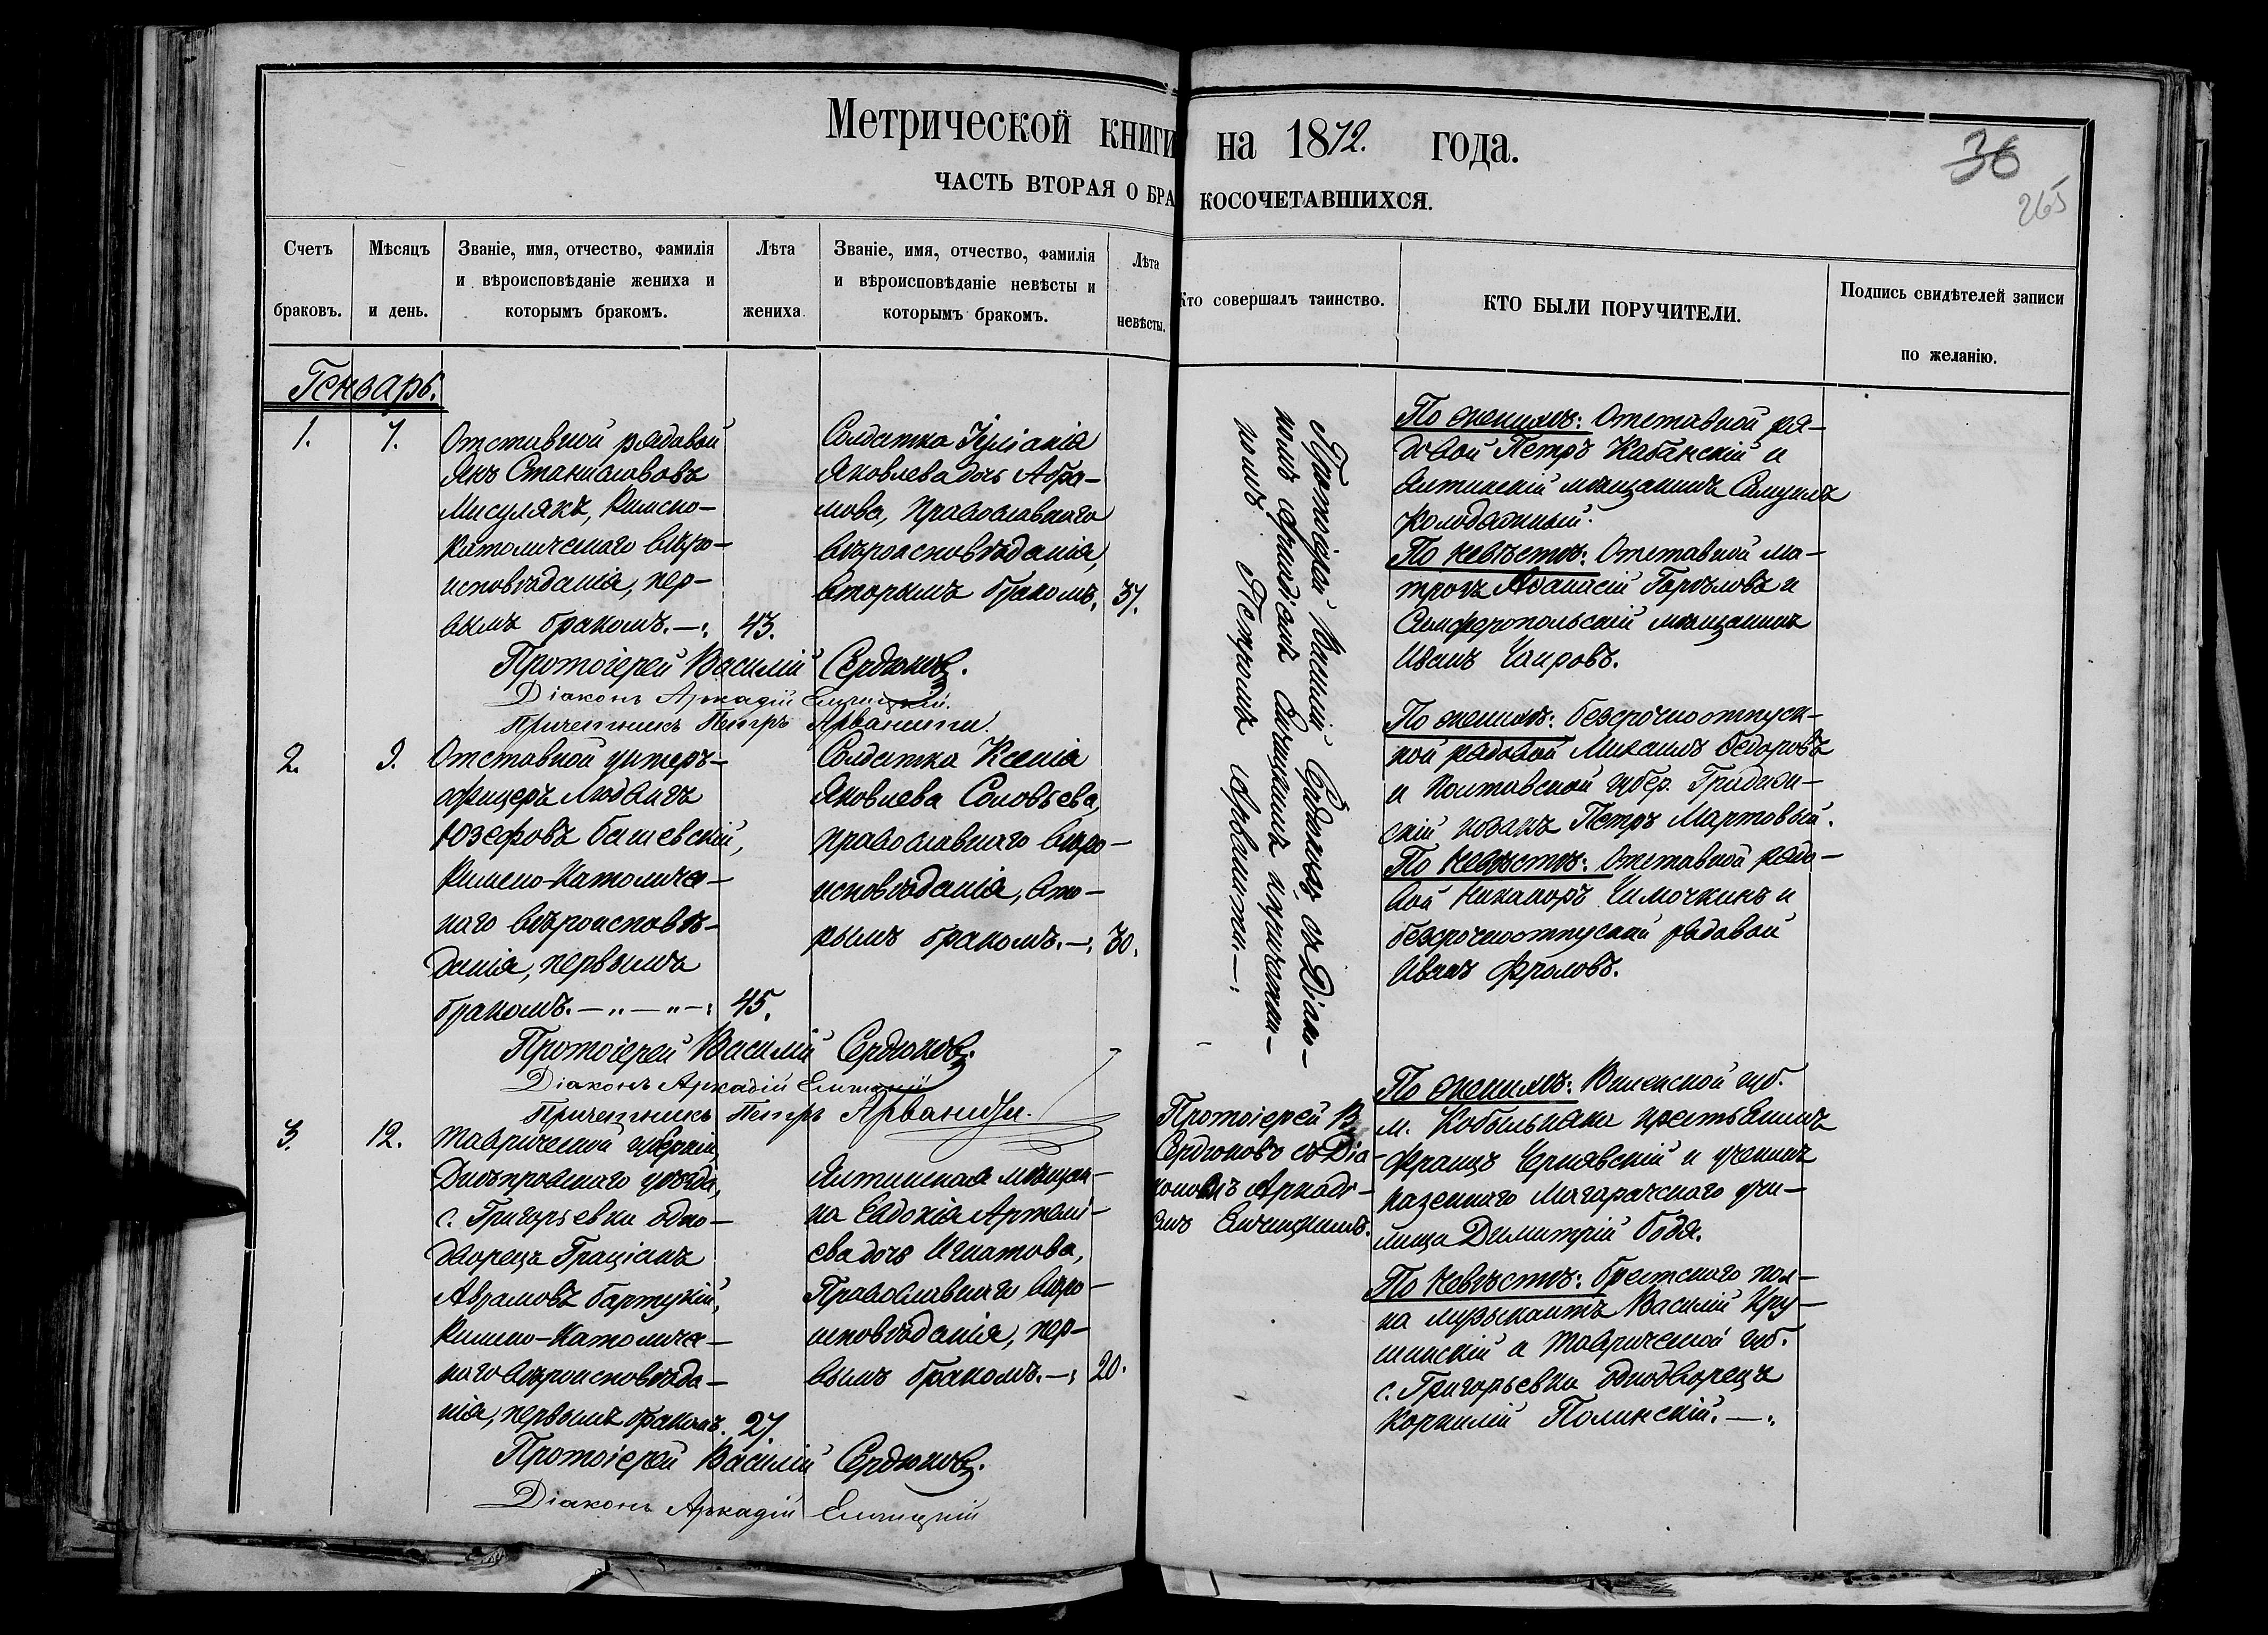 Метрической книги на 1872. года.
ЧАСТЬ ВТОРАЯ О БРАКОСОЧЕТАВШИХСЯ.
36
265
Счетъ браковъ.
Мѣсяцъ и день.
Званіе, имя, отчество, фамилія
и вѣроисповѣданіе жениха и
которымъ бракомъ.
Лѣта жениха.
Званіе, имя, отчество, фамилія
и вѣроисповѣданіе невѣсты и
которымъ бракомъ.
Лѣта невѣсты.
Кто совершалъ таинство.
КТО БЫЛИ ПОРУЧИТЕЛИ.
Подпись свидѣтелей записи
по желанію.
Генварь.
1.
7.
Отставной рядовой
Янъ Станиславовъ
Мисулякъ, Римско-
католическаго вѣро-
исповѣданія, пер-
вымъ бракомъ.—:
43.
Солдатка Іуліанія
Яковлева дочь Абра-
мова, Православнаго
вѣроисповѣданія,
вторымъ бракомъ.
37.
Протоіерей Василій Сердюковъ, съ Діако-
номъ Аркадіемъ и причетни-
комъ Петромъ Арванити.—:
По женихѣ: Отставной ря-
довой Петръ Кабанскій и
Ялтинскій мѣщанинъ Самуилъ
По невѣстѣ: Отставной ма-
тросъ Аѳанасій Горѣловъ и
Симферопольскій мѣщанинъ
Иванъ Чаировъ.
Протоіерей Василій Сердюковъ.
Діаконъ Аркадій
Причетникъ Петръ Арванити.
2.
9.
Отставной унтеръ-
офицеръ Людвигъ
Юзефовъ Башевскій,
Римско-Католиче-
каго вѣроисповѣ-
данія, первымъ
бракомъ.—„—„—:
45.
Солдатка Ксенія
Яковлева Соловьева,
православнаго вѣро-
исповѣданія, вто-
рымъ бракомъ.—:
30.
По женихѣ: безсрочноотпуск-
ной рядовой Михаилъ Ѳедоровъ
и Полтавской губер.
скій козакъ Петръ Мартовый.
По невѣстѣ: Отставной рядо-
вой Никаноръ Чимочкинъ и
безсрочноотпускной рядовой
Иванъ Фроловъ.
Протоіерей Василій Сердюковъ.
Діаконъ Аркадій
Причетникъ Петръ Арваниди.
3.
12.
Таврической губерніи,
Днѣпровскаго уѣзда,
с. Григорьевки одно-
дворецъ Граціанъ
Аврамовъ Бартукій,
Римско-Католиче-
каго вѣроисповѣда-
нія, первымъ бракомъ.
27.
Ялтинская мѣщан-
ка Евдокія Артемі-
ева дочь Игнатова,
Православнаго вѣро-
исповѣданія, пер-
вымъ бракомъ.—:
20.
Протоіерей В.
Сердюковъ съ Діа-
кономъ Аркаді-
емъ
По женихѣ: Виленской губ.
м. Кобыльника крестьянинъ
Францъ Чернявскій и ученикъ
казеннаго Магарачскаго учи-
лища Димитрій Бодя.
По невѣстѣ: Брестскаго пол-
ка музыкантъ Василій Кру-
шинскій и Таврической губ.
с. Григорьевки однодворецъ
Корнилій Полинскій.—:
Протоіерей Василій Сердюковъ.
Діаконъ Аркадій